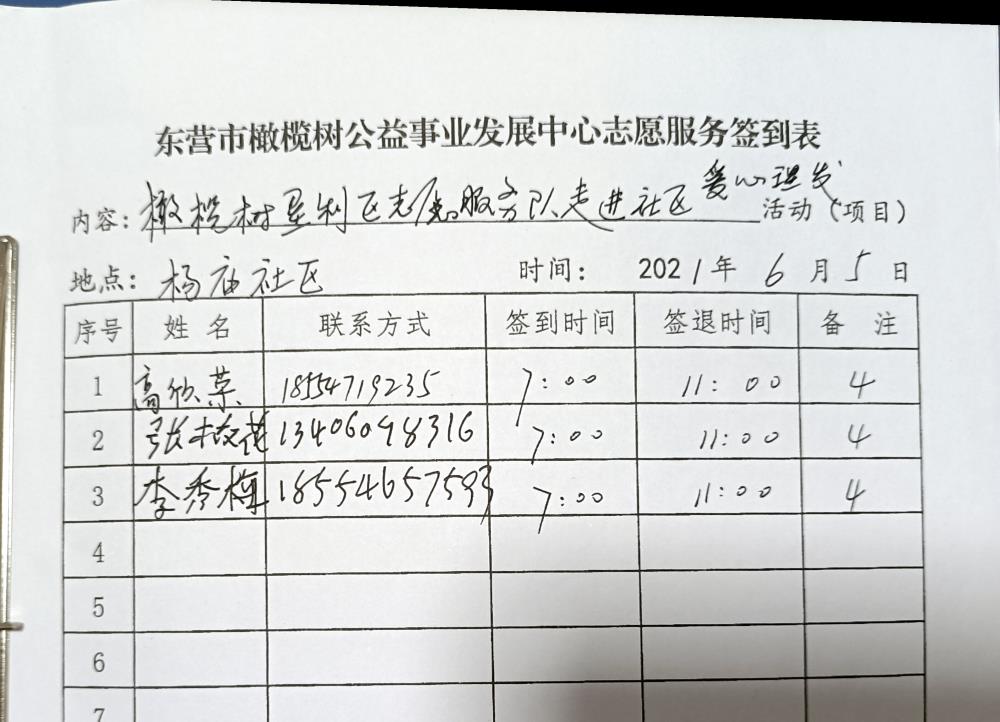 东营市橄榄树公益事业发展中心志愿服务签到表
内容：橄榄树垦利区志愿服务队走进社区爱心理发活动（项目）
地点：杨庙社区 时间：2021年6月5日
序号 姓名 联系方式 签到时间 签退时间 备注
1 高欣荣 18554719235 7:00 11:00 4
2 张梅花 13406098316 7:00 11:00 4
3 李秀梅 18554657593 7:00 11:00 4
4
5
6
7